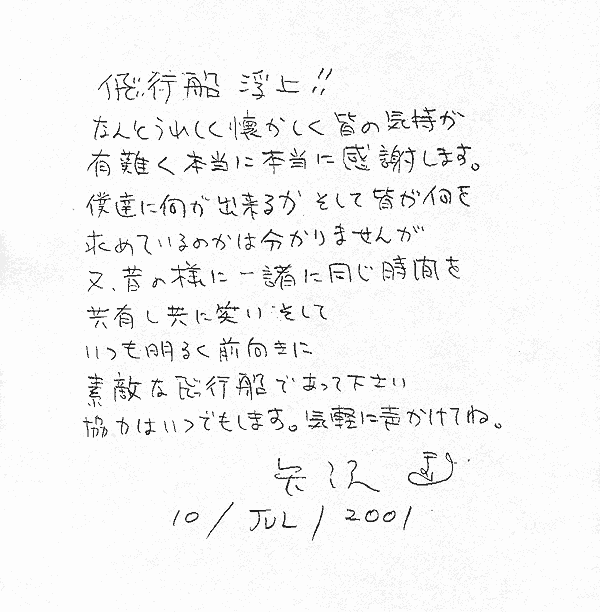 飛行船 浮上!!
なんとうれしく懐かしく皆の気持が
有難く本当に本当に感謝します。
僕達に何が出来るか そして皆が何を
求めているのかは分かりませんが
又、昔の様に一諸に同じ時間を
共有し共に笑い そして
いつも明るく前向きに
素敵な飛行船であって下さい
協力はいつでもします。気軽に声かけてね。
矢沢
10/JUL/2001